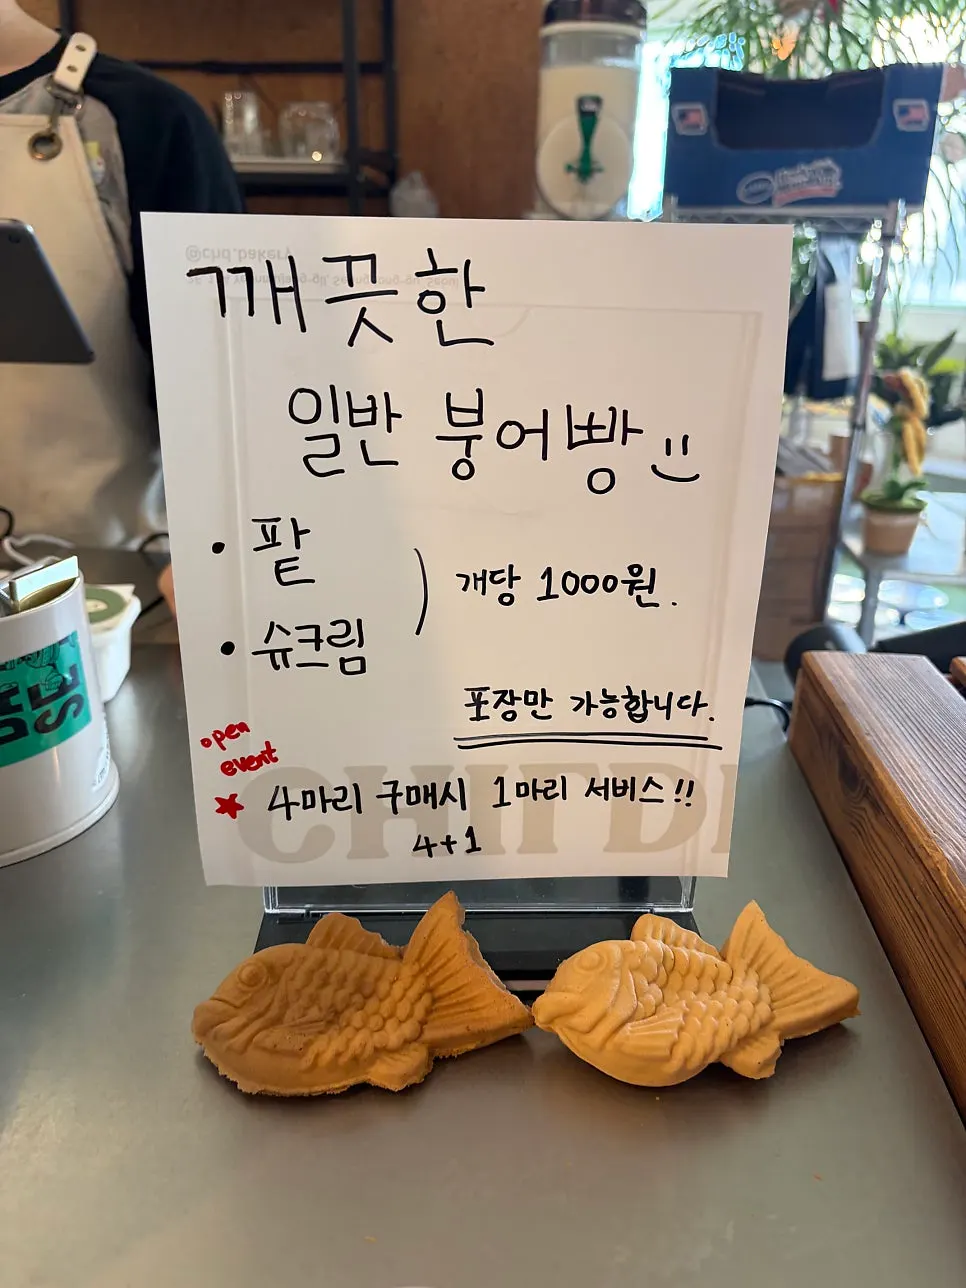 @chd.bakery
깨끗한
일반 붕어빵
• 팥
• 슈크림
개당 1000원.
포장만 가능합니다.
open
event
4마리 구매시 1마리 서비스!!
4+1
CHIT D